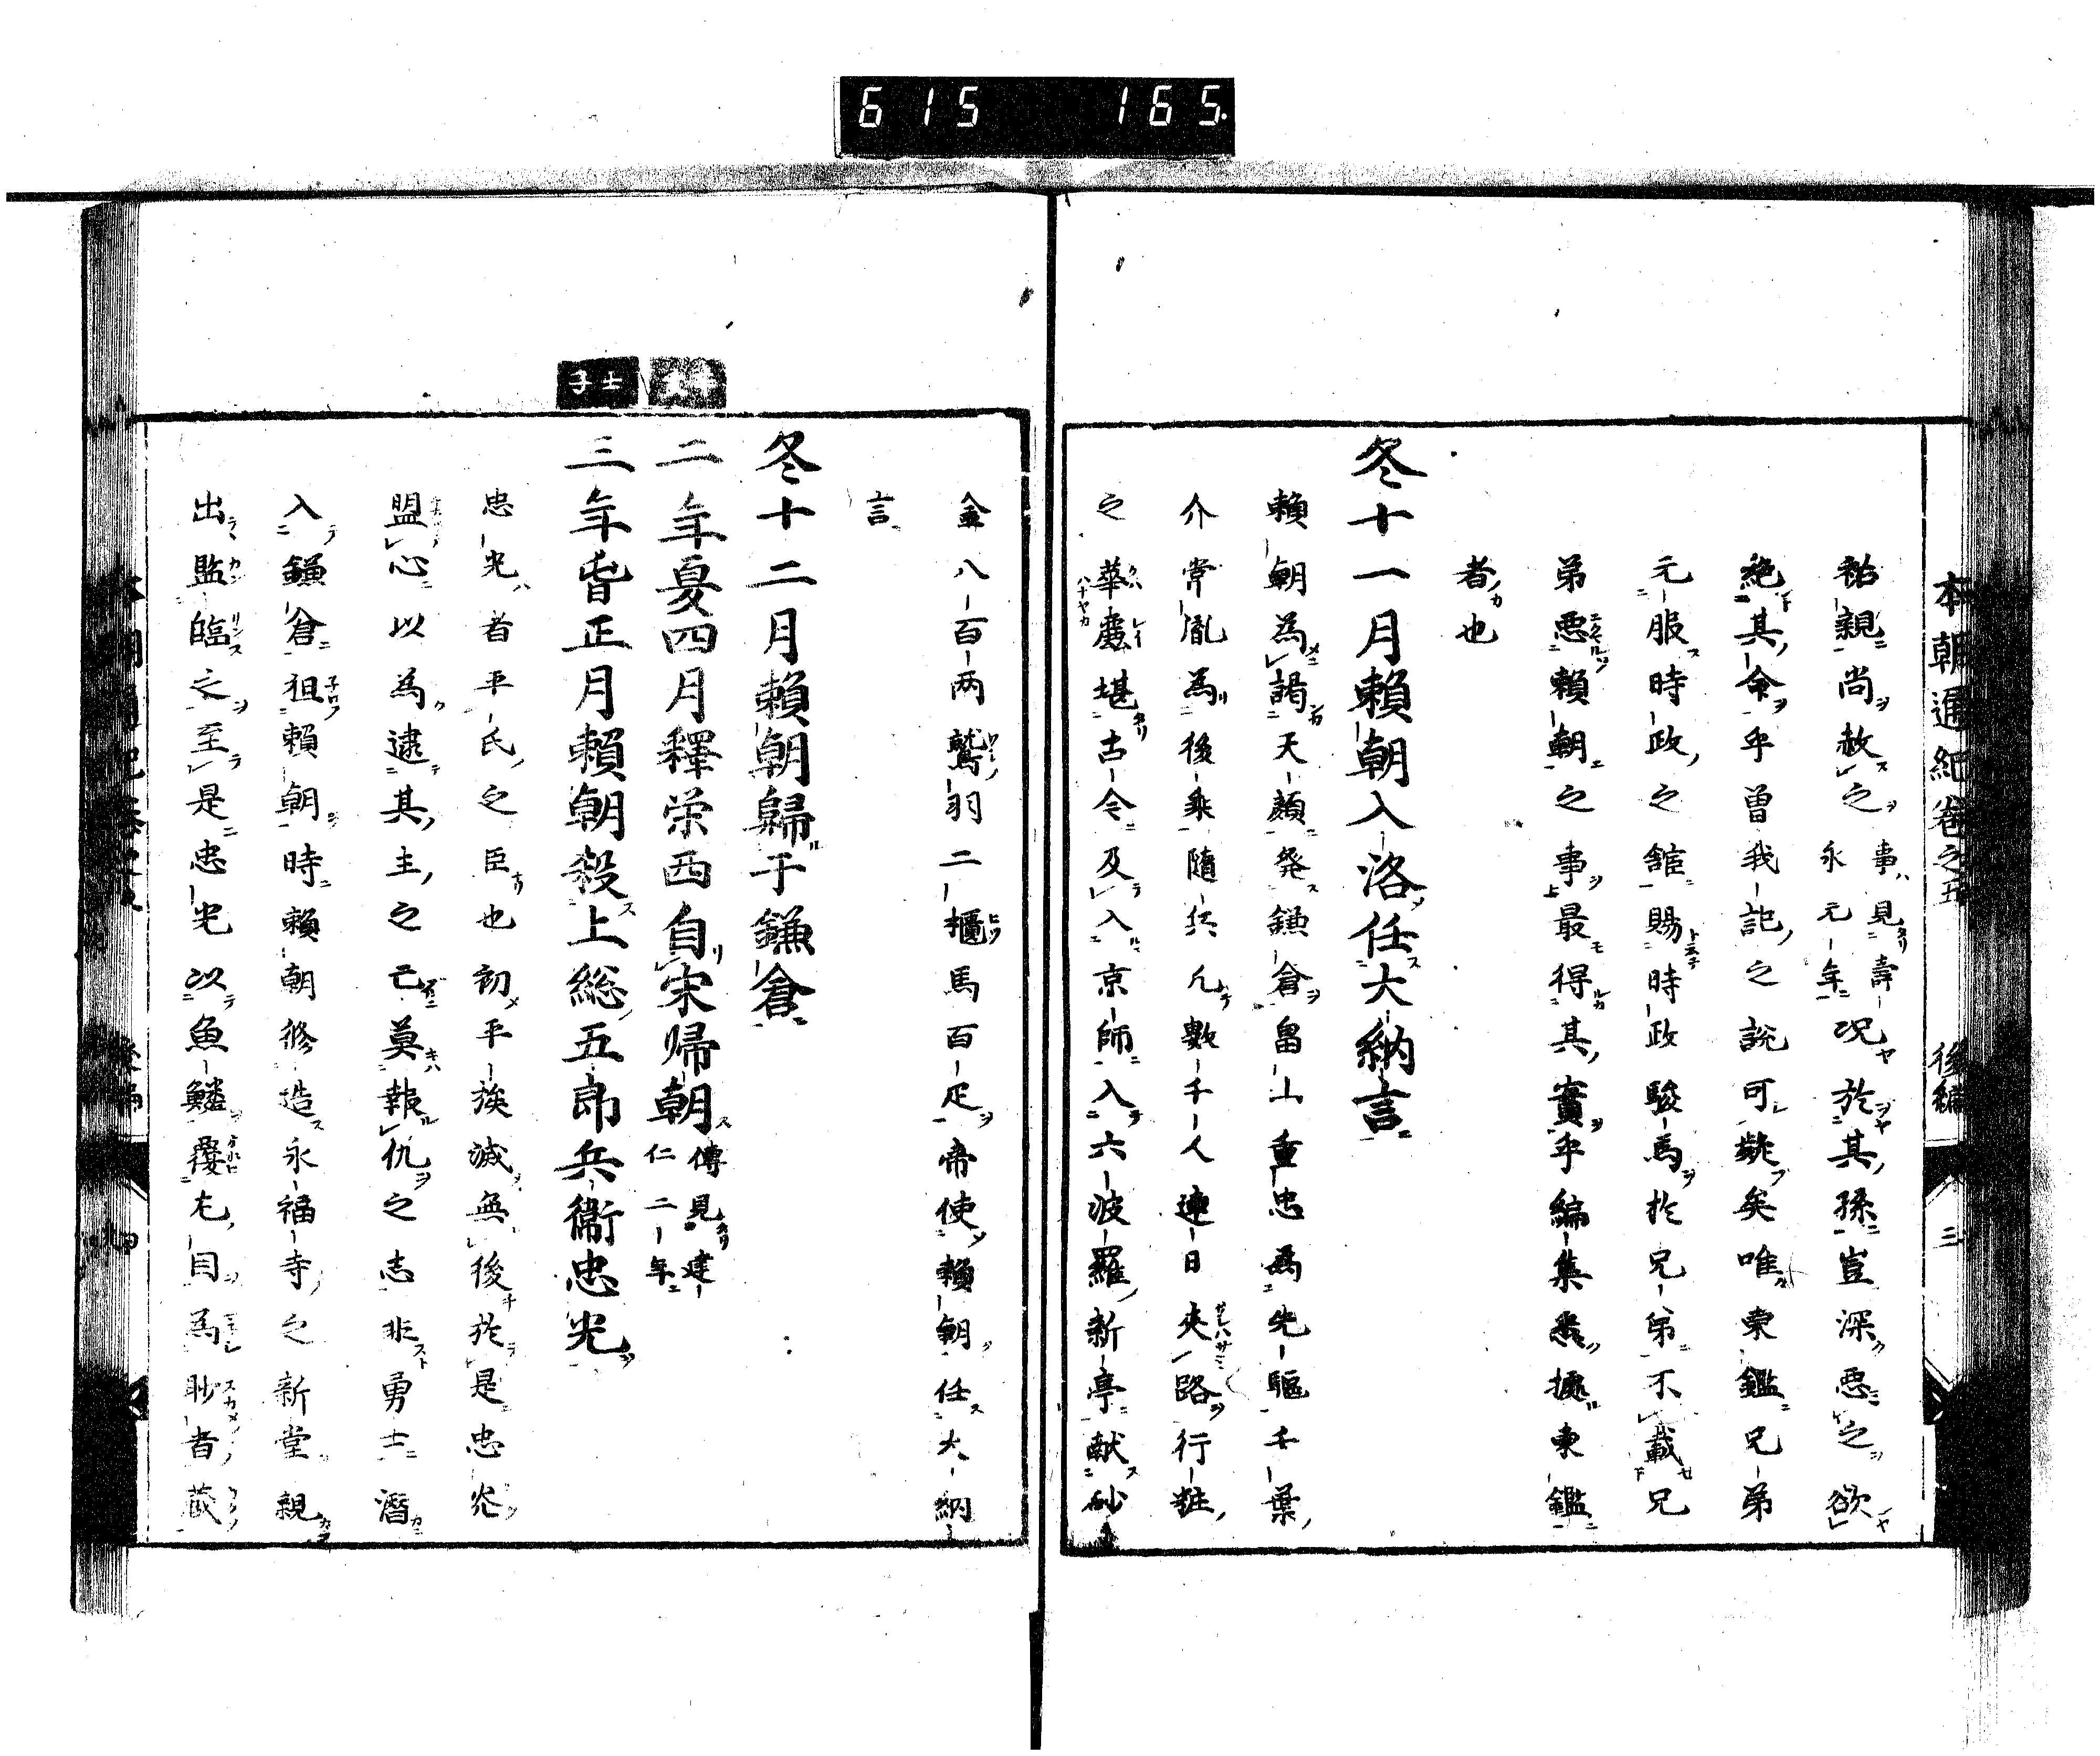 615 165
本朝通紀卷之五 後編 三
祐親尚赦之事見壽永元年況於其孫豈深惡之欲
絶其命乎曽我記之説可疑矣唯東鑑兄弟
元服時政之舘賜時政駿馬於兄弟不載兄
弟惡頼朝之事最得其實乎編集悉據東鑑
者也
冬十一月頼朝入洛任大納言
頼朝為謁天顔発鎌倉畠山重忠為先駆千葉
介常胤為後乘隨兵凢數千人連日夾路行粧
之華麗堪古今及入京師入六波羅新亭献砂
金八百两鷲羽二櫃馬百疋帝使頼朝任大納
言
冬十二月頼朝歸于鎌倉
二年夏四月釋栄西自宋帰朝傳見建仁二年
三年春正月頼朝殺上総五郎兵衞忠光
忠光者平氏之臣也初平族滅無後於是忠光
盟心以為逮其主之亡莫報仇之志非勇士潛
入鎌倉狙頼朝時頼朝修造永福寺之新堂親
出監臨之至是忠光以魚鱗覆左目為眇者蔵